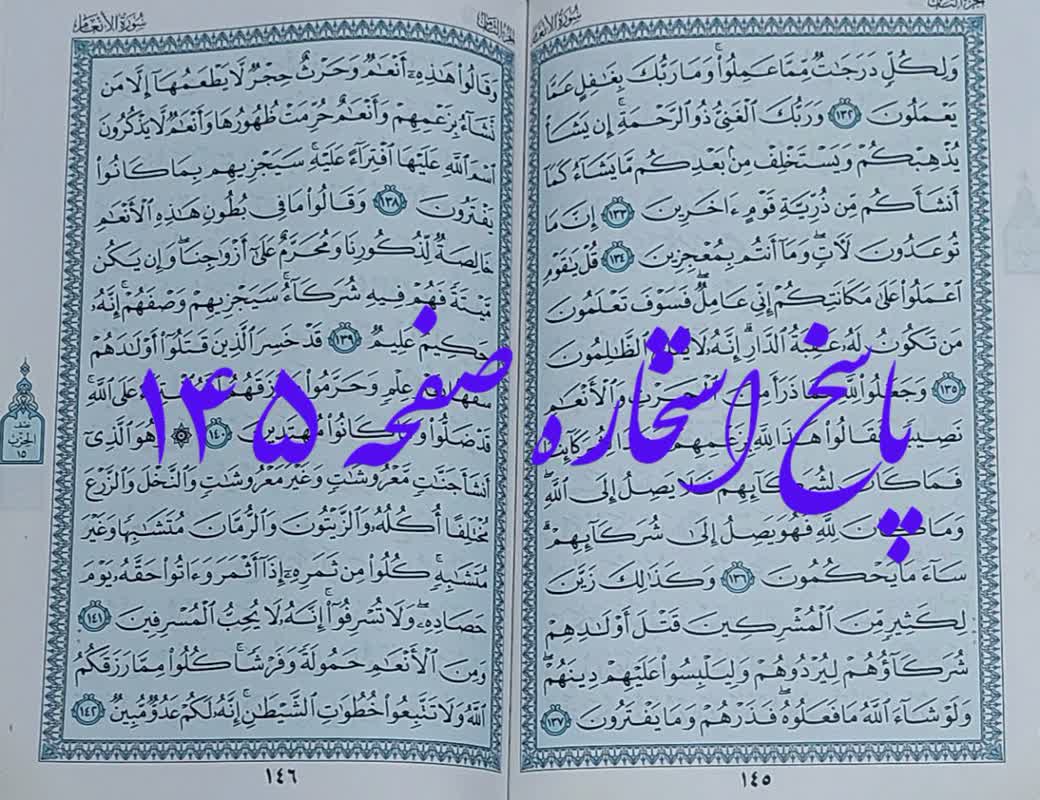 سُورَةُ الأَنْعَامِ
وَلِكُلٍّ دَرَجَٰتٌ مِّمَّا عَمِلُوا۟ ۚ وَمَا رَبُّكَ بِغَٰفِلٍ عَمَّا
يَعْمَلُونَ ١٣٢ وَرَبُّكَ ٱلْغَنِىُّ ذُو ٱلرَّحْمَةِ ۚ إِن يَشَأْ
يُذْهِبْكُمْ وَيَسْتَخْلِفْ مِنۢ بَعْدِكُم مَّا يَشَآءُ كَمَآ
أَنشَأَكُم مِّن ذُرِّيَّةِ قَوْمٍ ءَاخَرِينَ ١٣٣ إِنَّ مَا
تُوعَدُونَ لَءَاتٍ ۖ وَمَآ أَنتُم بِمُعْجِزِينَ ١٣٤ قُلْ يَٰقَوْمِ
ٱعْمَلُوا۟ عَلَىٰ مَكَانَتِكُمْ إِنِّى عَامِلٌ ۖ فَسَوْفَ تَعْلَمُونَ
مَن تَكُونُ لَهُۥ عَٰقِبَةُ ٱلدَّارِ ۗ إِنَّهُۥ لَا يُفْلِحُ ٱلظَّٰلِمُونَ
١٣٥ وَجَعَلُوا۟ لِلَّهِ مِمَّا ذَرَأَ مِنَ ٱلْحَرْثِ وَٱلْأَنْعَٰمِ
نَصِيبًا فَقَالُوا۟ هَٰذَا لِلَّهِ بِزَعْمِهِمْ وَهَٰذَا لِشُرَكَآئِنَا ۖ
فَمَا كَانَ لِشُرَكَآئِهِمْ فَلَا يَصِلُ إِلَى ٱللَّهِ ۖ
وَمَا كَانَ لِلَّهِ فَهُوَ يَصِلُ إِلَىٰ شُرَكَآئِهِمْ ۗ
سَآءَ مَا يَحْكُمُونَ ١٣٦ وَكَذَٰلِكَ زَيَّنَ
لِكَثِيرٍ مِّنَ ٱلْمُشْرِكِينَ قَتْلَ أَوْلَٰدِهِمْ
شُرَكَآؤُهُمْ لِيُرْدُوهُمْ وَلِيَلْبِسُوا۟ عَلَيْهِمْ دِينَهُمْ ۖ
وَلَوْ شَآءَ ٱللَّهُ مَا فَعَلُوهُ ۖ فَذَرْهُمْ وَمَا يَفْتَرُونَ ١٣٧
١٤٥
سُورَةُ الأَنْعَامِ
وَقَالُوا۟ هَٰذِهِۦٓ أَنْعَٰمٌ وَحَرْثٌ حِجْرٌ لَّا يَطْعَمُهَآ إِلَّا مَن
نَّشَآءُ بِزَعْمِهِمْ وَأَنْعَٰمٌ حُرِّمَتْ ظُهُورُهَا وَأَنْعَٰمٌ لَّا يَذْكُرُونَ
ٱسْمَ ٱللَّهِ عَلَيْهَا ٱفْتِرَآءً عَلَيْهِ ۚ سَيَجْزِيهِم بِمَا كَانُوا۟
يَفْتَرُونَ ١٣٨ وَقَالُوا۟ مَا فِى بُطُونِ هَٰذِهِ ٱلْأَنْعَٰمِ
خَالِصَةٌ لِّذُكُورِنَا وَمُحَرَّمٌ عَلَىٰٓ أَزْوَٰجِنَا ۖ وَإِن يَكُن
مَّيْتَةً فَهُمْ فِيهِ شُرَكَآءُ ۚ سَيَجْزِيهِمْ وَصْفَهُمْ ۚ إِنَّهُۥ
حَكِيمٌ عَلِيمٌ ١٣٩ قَدْ خَسِرَ ٱلَّذِينَ قَتَلُوٓا۟ أَوْلَٰدَهُمْ
سَفَهًۢا بِغَيْرِ عِلْمٍ وَحَرَّمُوا۟ مَا رَزَقَهُمُ ٱللَّهُ ٱفْتِرَآءً عَلَى ٱللَّهِ ۚ
قَدْ ضَلُّوا۟ وَمَا كَانُوا۟ مُهْتَدِينَ ١٤٠ ۞ وَهُوَ ٱلَّذِىٓ
أَنشَأَ جَنَّٰتٍ مَّعْرُوشَٰتٍ وَغَيْرَ مَعْرُوشَٰتٍ وَٱلنَّخْلَ وَٱلزَّرْعَ
مُخْتَلِفًا أُكُلُهُۥ وَٱلزَّيْتُونَ وَٱلرُّمَّانَ مُتَشَٰبِهًا وَغَيْرَ
مُتَشَٰبِهٍ ۚ كُلُوا۟ مِن ثَمَرِهِۦٓ إِذَآ أَثْمَرَ وَءَاتُوا۟ حَقَّهُۥ يَوْمَ
حَصَادِهِۦ ۖ وَلَا تُسْرِفُوٓا۟ ۚ إِنَّهُۥ لَا يُحِبُّ ٱلْمُسْرِفِينَ ١٤١
وَمِنَ ٱلْأَنْعَٰمِ حَمُولَةً وَفَرْشًا ۚ كُلُوا۟ مِمَّا رَزَقَكُمُ
ٱللَّهُ وَلَا تَتَّبِعُوا۟ خُطُوَٰتِ ٱلشَّيْطَٰنِ ۚ إِنَّهُۥ لَكُمْ عَدُوٌّ مُّبِينٌ ١٤٢
١٤٦
الحِزْب
١٥
پاسخ استخاره صفحه ۱۴۵